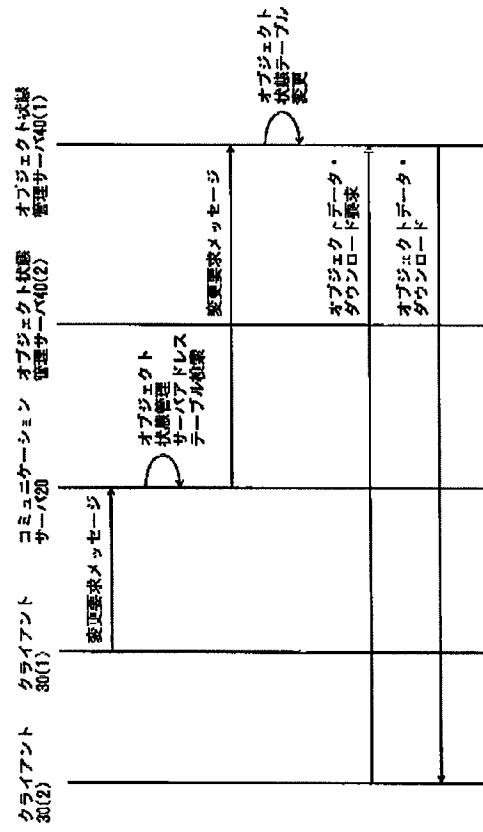 クライアント
30(2)
クライアント
30(1)
コミュニケーション
サーバ20
オブジェクト状態
管理サーバ40(2)
オブジェクト状態
管理サーバ40(1)
変更要求メッセージ
オブジェクト
状態管理
サーバアドレス
テーブル検索
変更要求メッセージ
オブジェクト
状態テーブル
変更
オブジェクトデータ・
ダウンロード要求
オブジェクトデータ・
ダウンロード